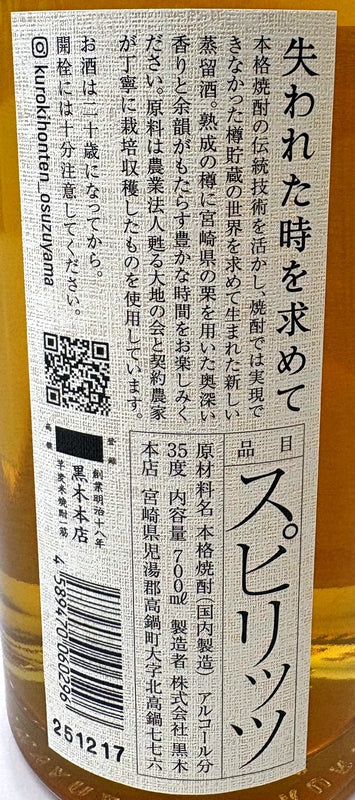 失われた時を求めて
本格焼酎の伝統技術を活かし、焼酎では実現で
きなかった樽貯蔵の世界を求めて生まれた新しい
蒸留酒。熟成の樽に宮崎県の栗を用いた奥深い
香りと余韻がもたらす豊かな時間をお楽しみく
ださい。原料は農業法人甦る大地の会と契約農家
が丁寧に栽培収穫したものを使用しています。
お酒は二十歳になってから。
開栓には十分注意してください。
kurokihonten_osuzuyama
品目
スピリッツ
原材料名 本格焼酎(国内製造) アルコール分
35度 内容量 700㎖ 製造者 株式会社 黒木
本店 宮崎県児湯郡高鍋町大字北高鍋七七六
登録
創業明治十八年
黒木本店
芋麦米焼酎一筋
4 589470 060290
251217